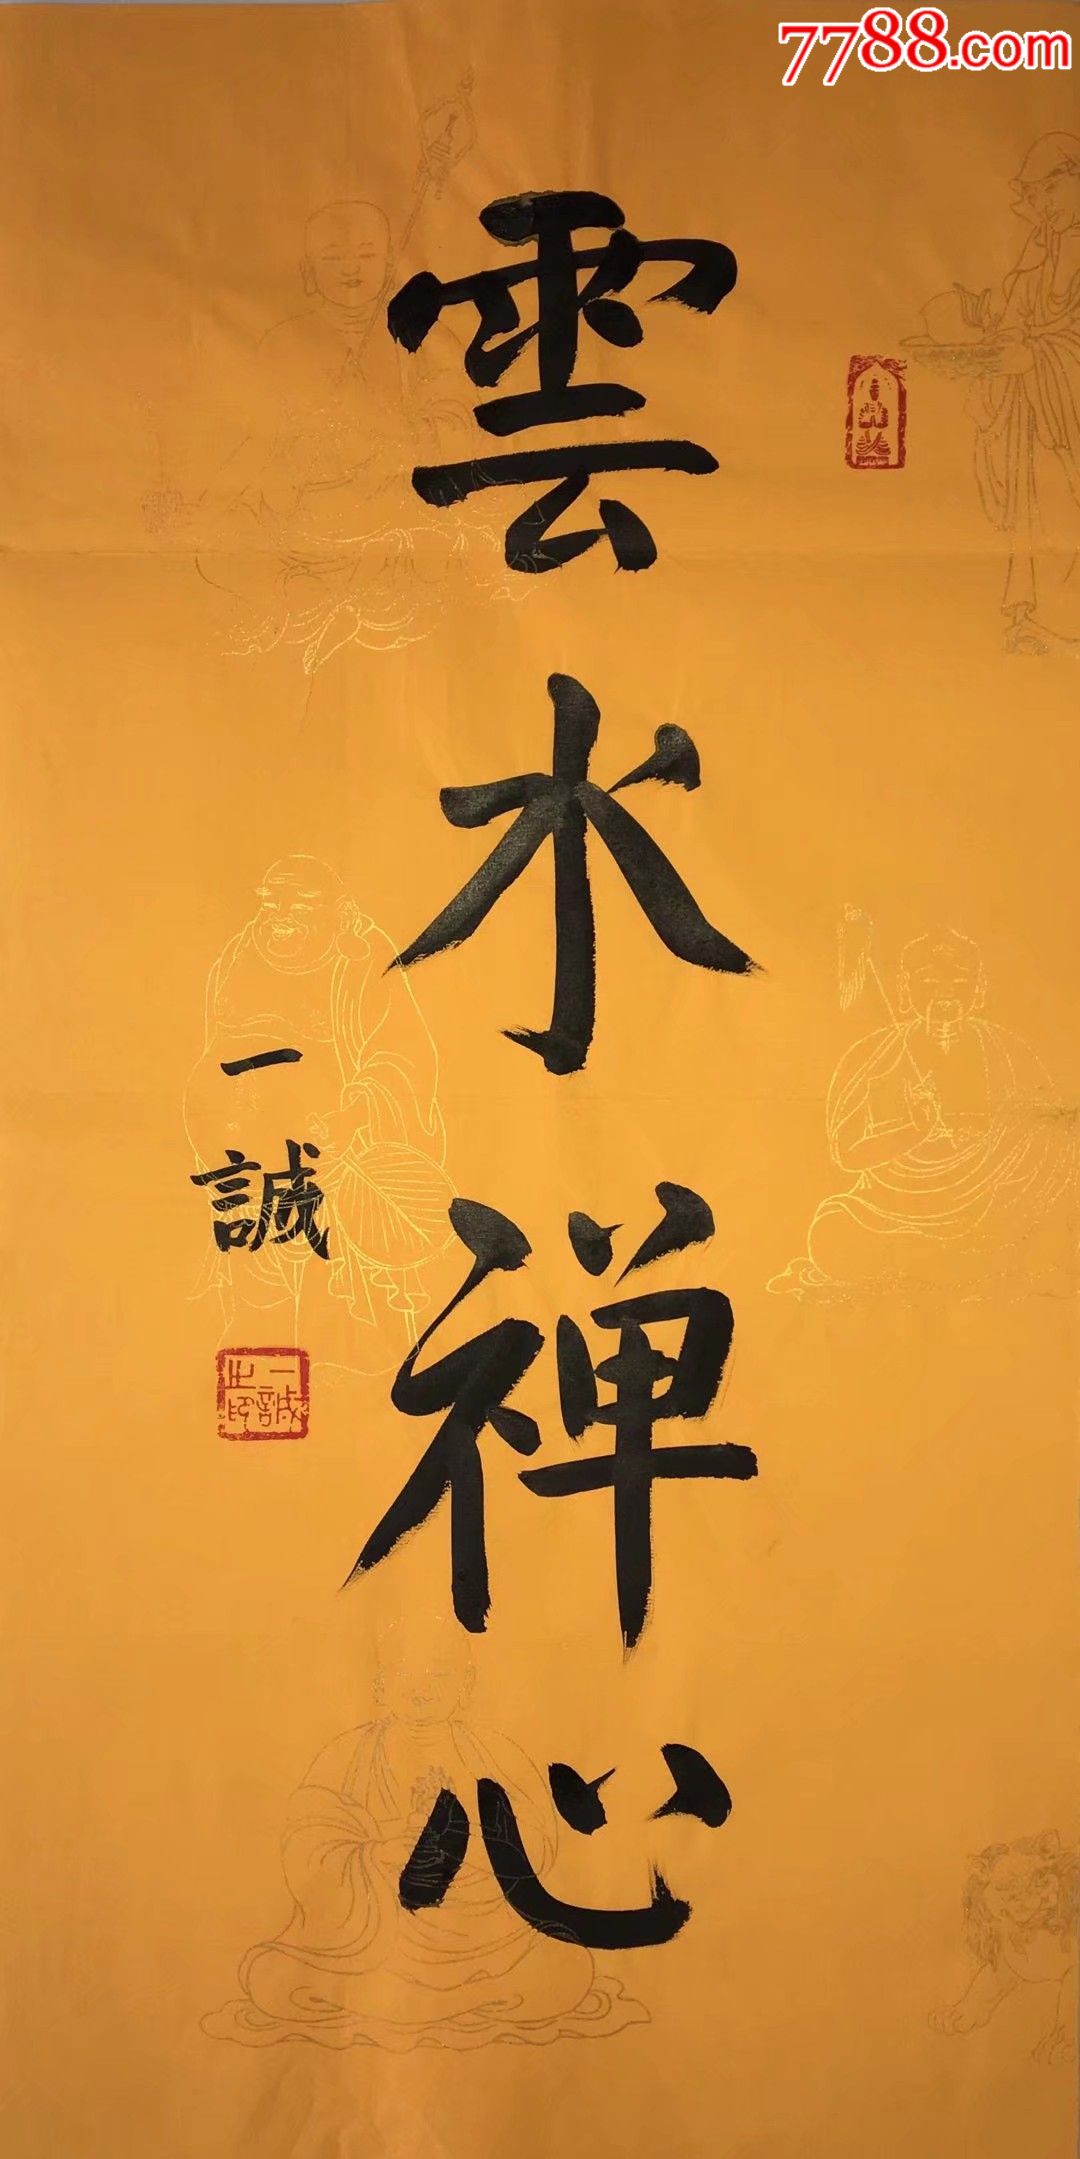 7788.com
雲水禅心
一誠
一誠之印